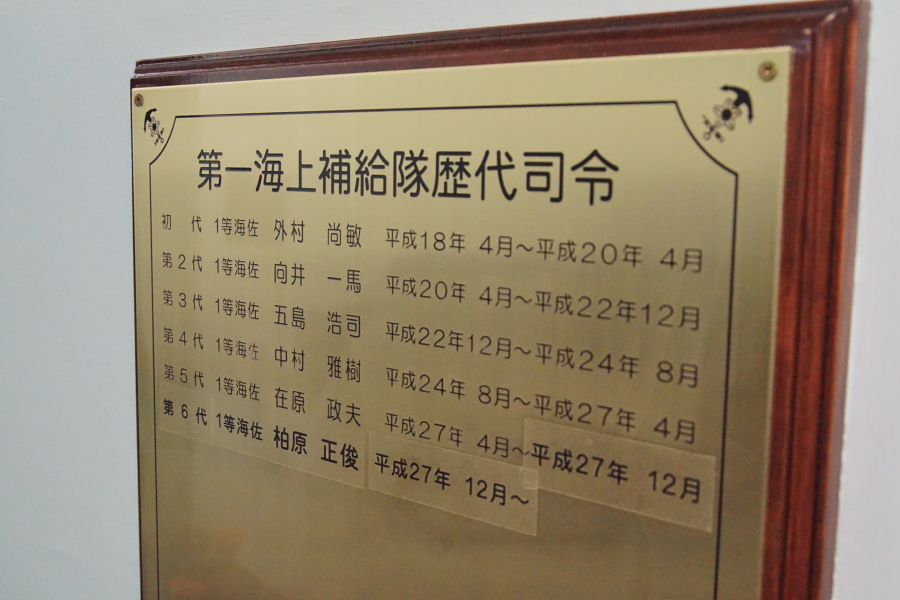 第一海上補給隊歴代司令
初 代 1等海佐 外村 尚敏 平成18年 4月〜平成20年 4月
第2代 1等海佐 向井 一馬 平成20年 4月〜平成22年12月
第3代 1等海佐 五島 浩司 平成22年12月〜平成24年 8月
第4代 1等海佐 中村 雅樹 平成24年 8月〜平成27年 4月
第5代 1等海佐 在原 政夫 平成27年 4月〜平成27年 12月
第6代 1等海佐 柏原 正俊 平成27年 12月〜